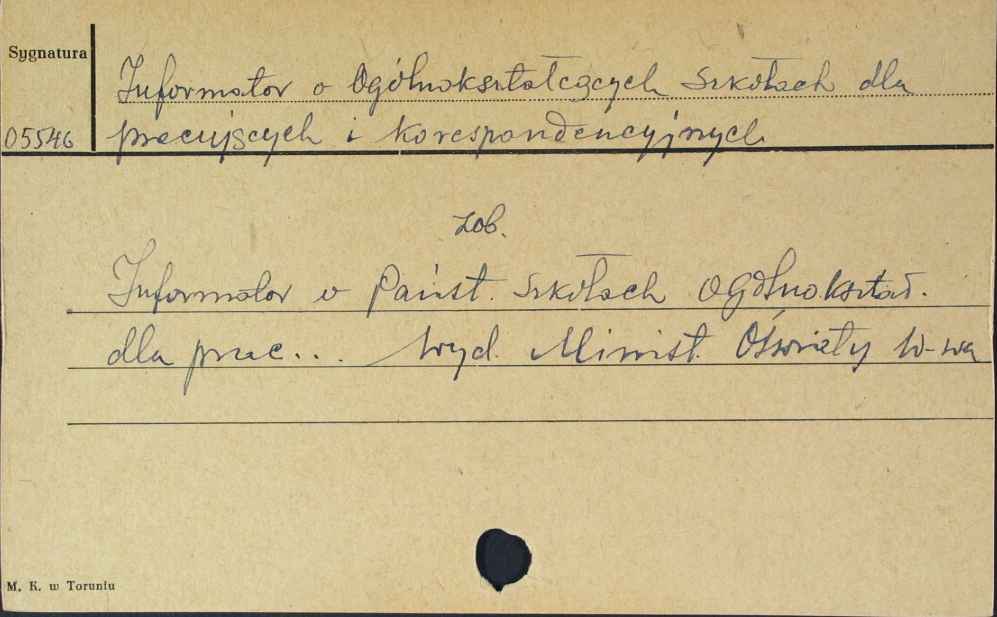 Sygnatura
Informator o Ogólnokształcących Szkołach dla
05546 pracujących i korespondencyjnych
zob.
Informator o Państ. Szkołach Ogólnokształ.
dla prac... Wyd. Minist. Oświaty W-wa
M. K. w Toruniu